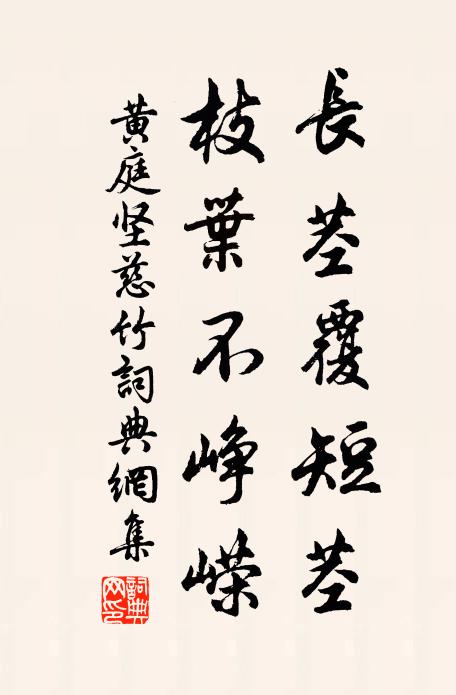 長莖覆短莖
枝葉不崢嶸
黃庭坚慈竹詞典網集
詞典网印